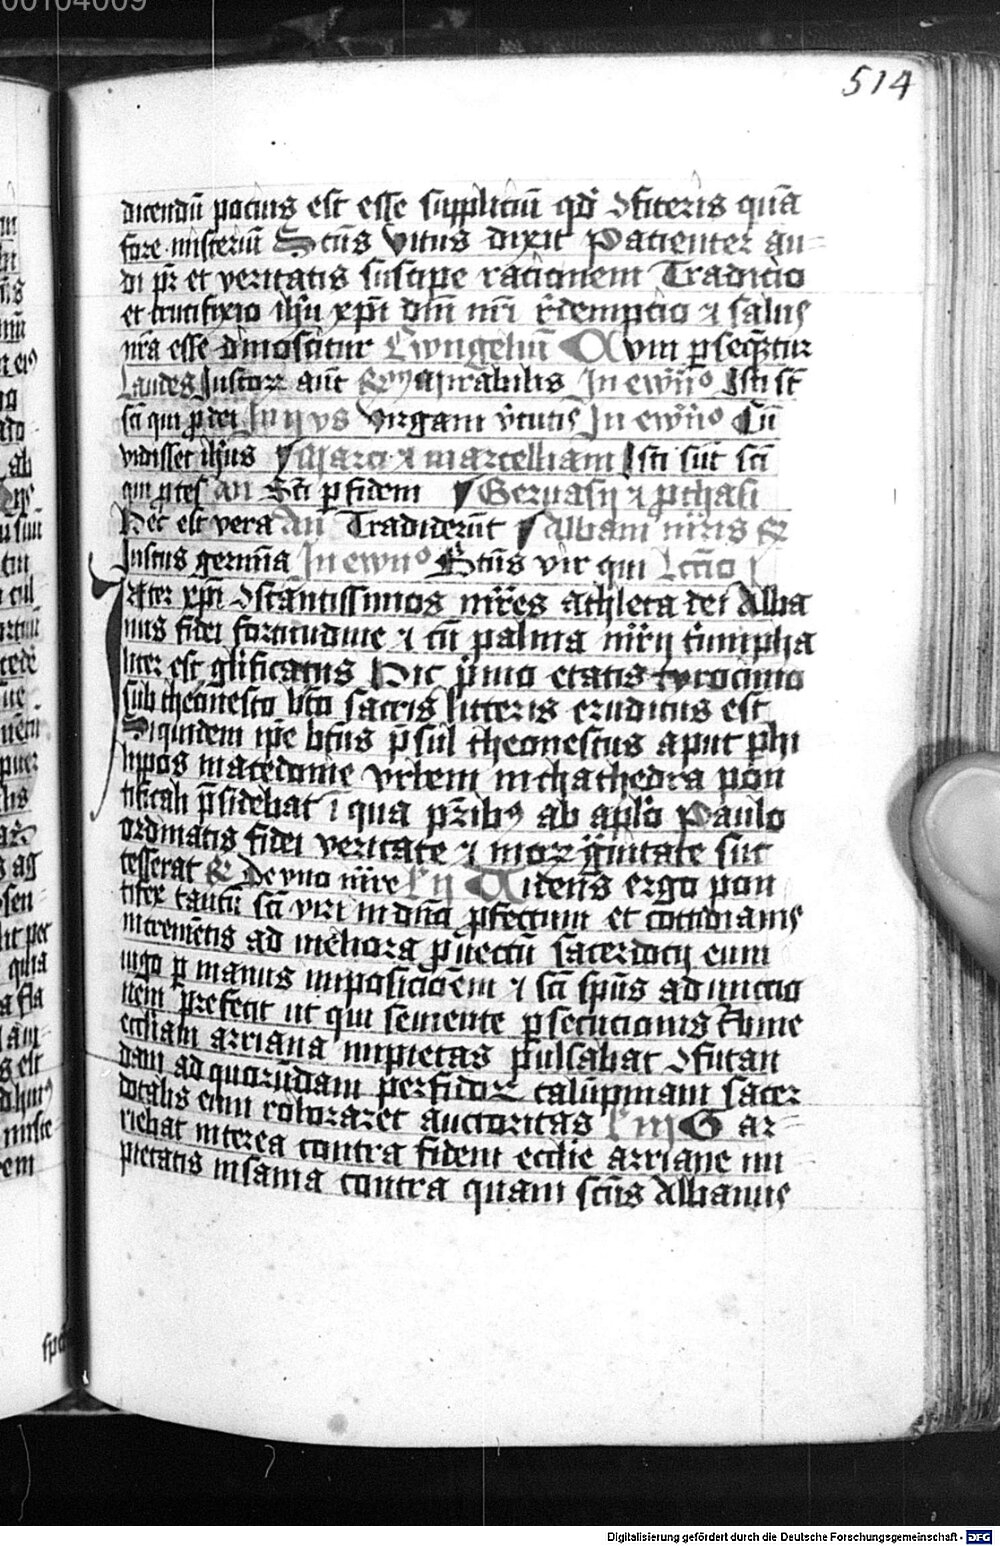 00104009
514
dicendū pocius est esse suppliciū qd ꝯfiteris quā
fore misteriū Sctūs Vitus dixit Pacienter au=
di pr̄ et veritatis suscipe racionem Tradicio
et crucifixio ihū xpī dn̄i nr̄i redempcio ⁊ salus
nr̄a esse dinoscitur Ewngeliū Cum ꝑseqͣtur
Laudes Iustorꝝ aūt Mirabilis In ewn̄o Isti st̄
sc̄i qui ꝓ dei In ij vs Virgam v̄tutis In ewn̄o Cū
vidisset ihūs Marci ⁊ marcelliani Isti sūt sc̄i
qui ꝓ tes an̄ Sc̄i ꝑ fidem Geruasij ⁊ ꝓthasi
Hec est vera An̄ Tradiderūt Albani mr̄is
Iustus germīa In ewn̄o Btūs vir qui Lcc̄io j
Inter xpī ꝯstantissimos mr̄es athleta dei Alba
nus fidei fortitudine ⁊ cū palma mr̄ij t̄umpha
liter est gl̄ificatus Hic p̄mo etatis tyrocinio
sub theonesto bt̄o sacris litteris eruditus est
Siquidem ip̄e bt̄us p̄sul theonestus aput phi
lippos macedonie vrbem in chathedra pon
tificali p̄sidebat ī qua pr̄ibꝰ ab aplo Paulo
ordinatis fidei veritate ⁊ morꝝ ḡuitate suc
cesserat De vno mr̄e L ij Videns ergo pon
tifex tantū sc̄i viri in dn̄o ꝓfectum et cottidianis
incremētis ad meliora ꝓuectū sacerdocij eum
iugo ꝑ manus imposicōem ⁊ sc̄i sp̄us ad unctio
nem prefecit ut qui semente ꝑsecucionis t̄bine
eccliam arriana impietas pulsabat ꝯfutan
dam ad quorūdam perfidorꝝ calūpniam sacer
dotalis eum roboraret auctoritas L iij Gar=
riebat interea contra fidem ecclie arriane im
pietatis insania contra quam sctūs Albanus
Digitalisierung gefördert durch die Deutsche Forschungsgemeinschaft - DFG